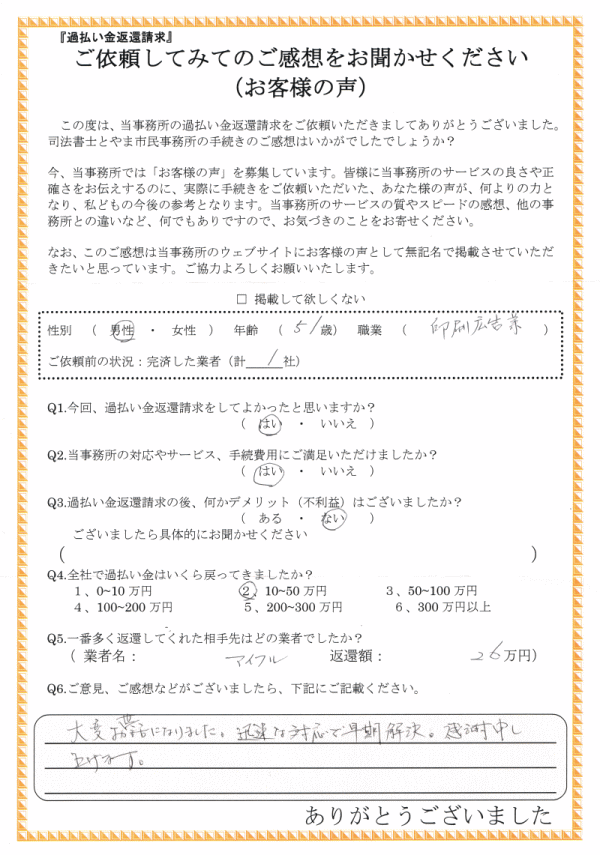 『過払い金返還請求』
ご依頼してみてのご感想をお聞かせください
（お客様の声）
この度は、当事務所の過払い金返還請求をご依頼いただきましてありがとうございました。
司法書士とやま市民事務所の手続きのご感想はいかがでしたでしょうか？
今、当事務所では「お客様の声」を募集しています。皆様に当事務所のサービスの良さや正
確さをお伝えするのに、実際に手続きをご依頼いただいた、あなた様の声が、何よりの力と
なり、私どもの今後の参考となります。当事務所のサービスの質やスピードの感想、他の事
務所との違いなど、何でもありですので、お気づきのことをお寄せください。
なお、このご感想は当事務所のウェブサイトにお客様の声として無記名で掲載させていただ
きたいと思っています。ご協力よろしくお願いいたします。
□ 掲載して欲しくない
性別 （ 男性 ・ 女性 ） 年齢 （ 51歳） 職業 （ 印刷広告業 ）
ご依頼前の状況：完済した業者（計 1 社）
Q1.今回、過払い金返還請求をしてよかったと思いますか？
（ はい ・ いいえ ）
Q2.当事務所の対応やサービス、手続費用にご満足いただけましたか？
（ はい ・ いいえ ）
Q3.過払い金返還請求の後、何かデメリット（不利益）はございましたか？
（ ある ・ ない ）
ございましたら具体的にお聞かせください
（ ）
Q4.全社で過払い金はいくら戻ってきましたか？
１、0~10 万円 ２、10~50 万円 ３、50~100 万円
４、100~200 万円 ５、200~300 万円 ６、300 万円以上
Q5.一番多く返還してくれた相手先はどの業者でしたか？
（ 業者名： アイフル 返還額： 26 万円）
Q6.ご意見、ご感想などがございましたら、下記にご記載ください。
大変お世話になりました。迅速な対応で早期解決。感謝申し
上げます。
ありがとうございました